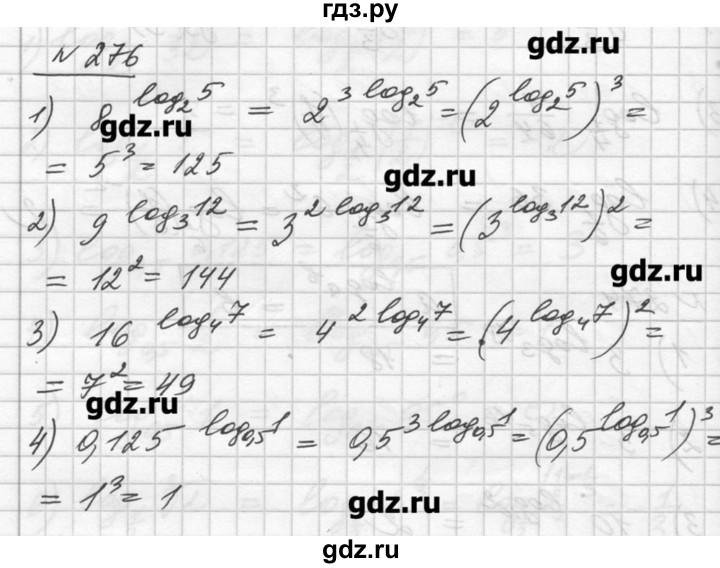 гдз.ру
№ 276
gdz.ru
1) 8^log₂5 = 2^3 log₂5 = (2^log₂5)^3 =
gdz.ru
= 5^3 = 125
gdz.ru
2) 9^log₃12 = 3^2 log₃12 = (3^log₃12)^2 =
= 12^2 = 144
gdz.ru
3) 16^log₄7 = 4^2 log₄7 = (4^log₄7)^2 =
= 7^2 = 49
gdz.ru
4) 0,125^log₀,₅1 = 0,5^3 log₀,₅1 = (0,5^log₀,₅1)^3 =
= 1^3 = 1
gdz.ru
gdz.ru